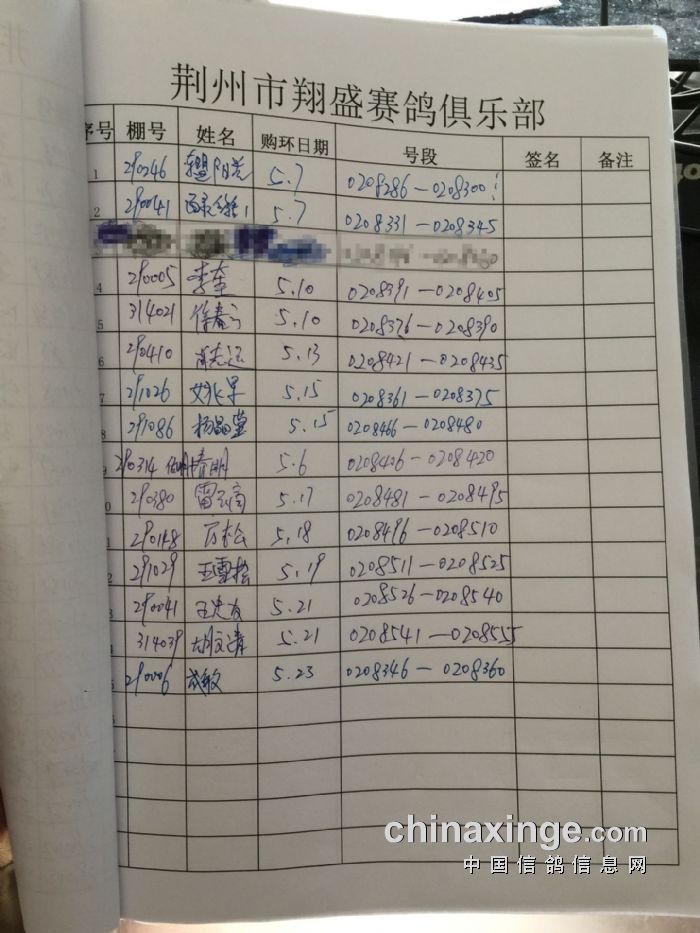 荆州市翔盛赛鸽俱乐部
序号 棚号 姓名 购环日期 号段 签名 备注
1 290246 5.7 0208286—0208300
2 290041 5.7 0208331—0208345
4 290005 李奎 5.10 0208391—0208405
5 314021 5.10 0208376—0208390
6 290410 肖志运 5.13 0208421—0208435
7 291026 5.15 0208361—0208375
8 291086 杨晶堂 5.15 0208466—0208480
9 290314 5.6 0208420
290380 雷 5.17 0208481—0208495
290148 万松 5.18 0208496—0208510
291029 王雪松 5.19 0208511—0208525
290041 王忠友 5.21 0208526—0208540
314039 胡文清 5.21 0208541—0208555
290006 敏 5.23 0208346—0208360
chinaxinge.com
中国信鸽信息网